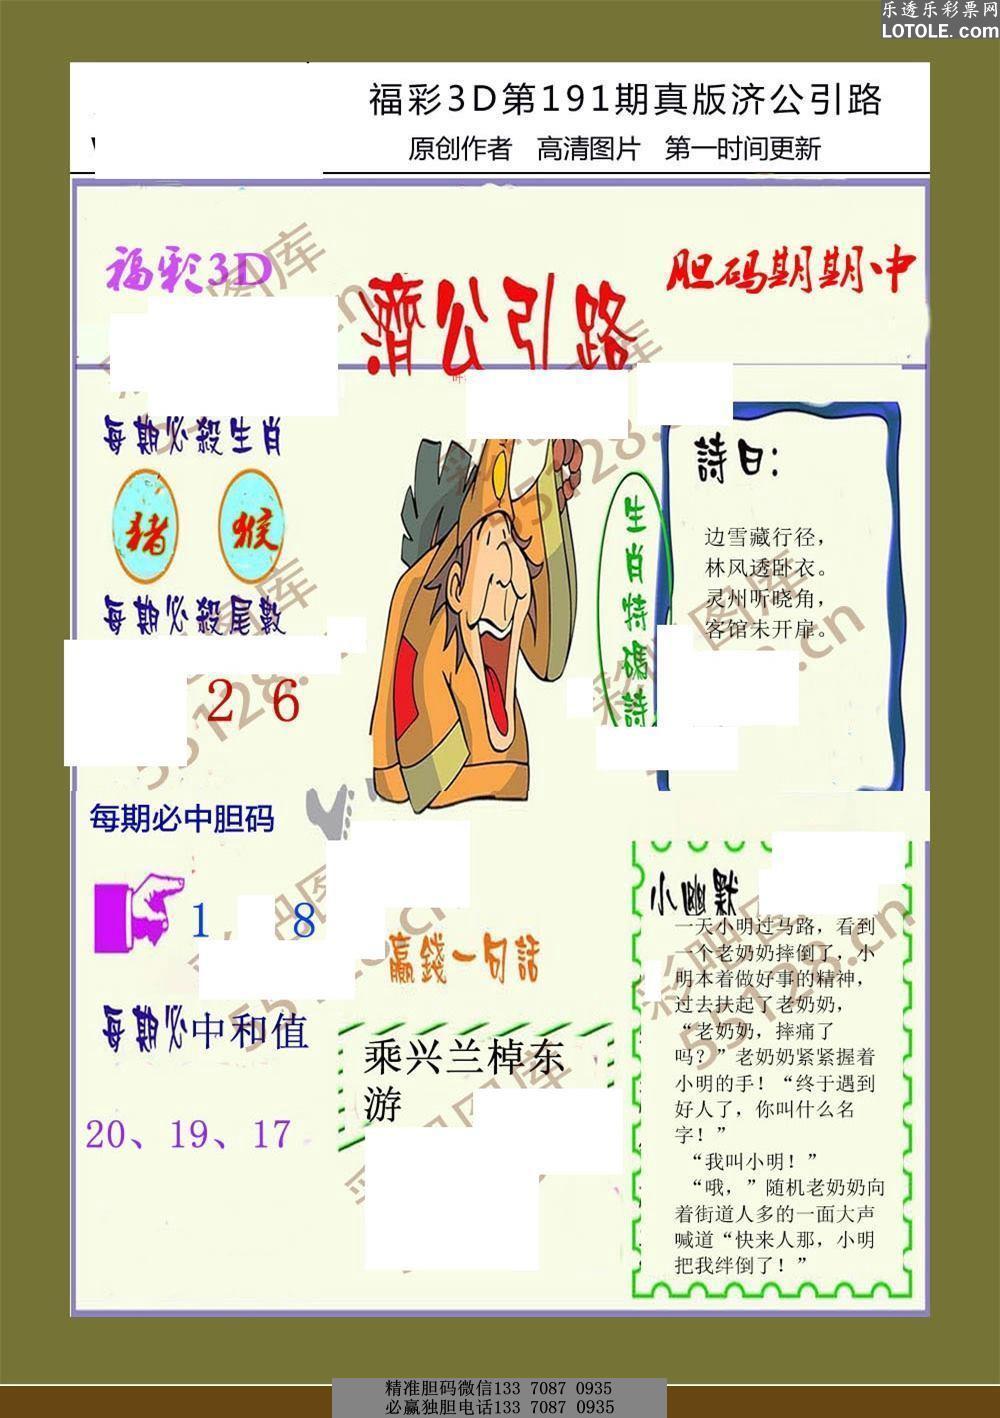 乐透乐彩票网
LOTOLE.com
福彩3D第191期真版济公引路
原创作者 高清图片 第一时间更新
福彩3D
濟公引路
胆码期期中
每期必殺生肖
猪 猴
每期必殺尾數
2 6
生肖特碼詩
詩曰：
边雪藏行径，
林风透卧衣。
灵州听晓角，
客馆未开扉。
每期必中胆码
1 8
每期必中和值
20、19、17
贏錢一句話
乘兴兰棹东
游
小幽默
一天小明过马路，看到
一个老奶奶摔倒了，小
明本着做好事的精神，
过去扶起了老奶奶，
“老奶奶，摔痛了
吗？”老奶奶紧紧握着
小明的手！“终于遇到
好人了，你叫什么名
字！”
“我叫小明！”
“哦，”随机老奶奶向
着街道人多的一面大声
喊道“快来人那，小明
把我绊倒了！”
彩吧图库
55128.cn
精准胆码微信133 7087 0935
必赢独胆电话133 7087 0935